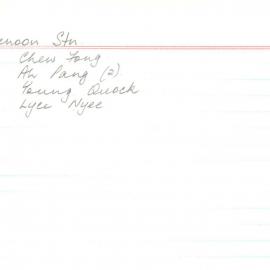 enoon Stn
Chew Fong
Ah Pang (2)
Young Quock
Lyee Nyee